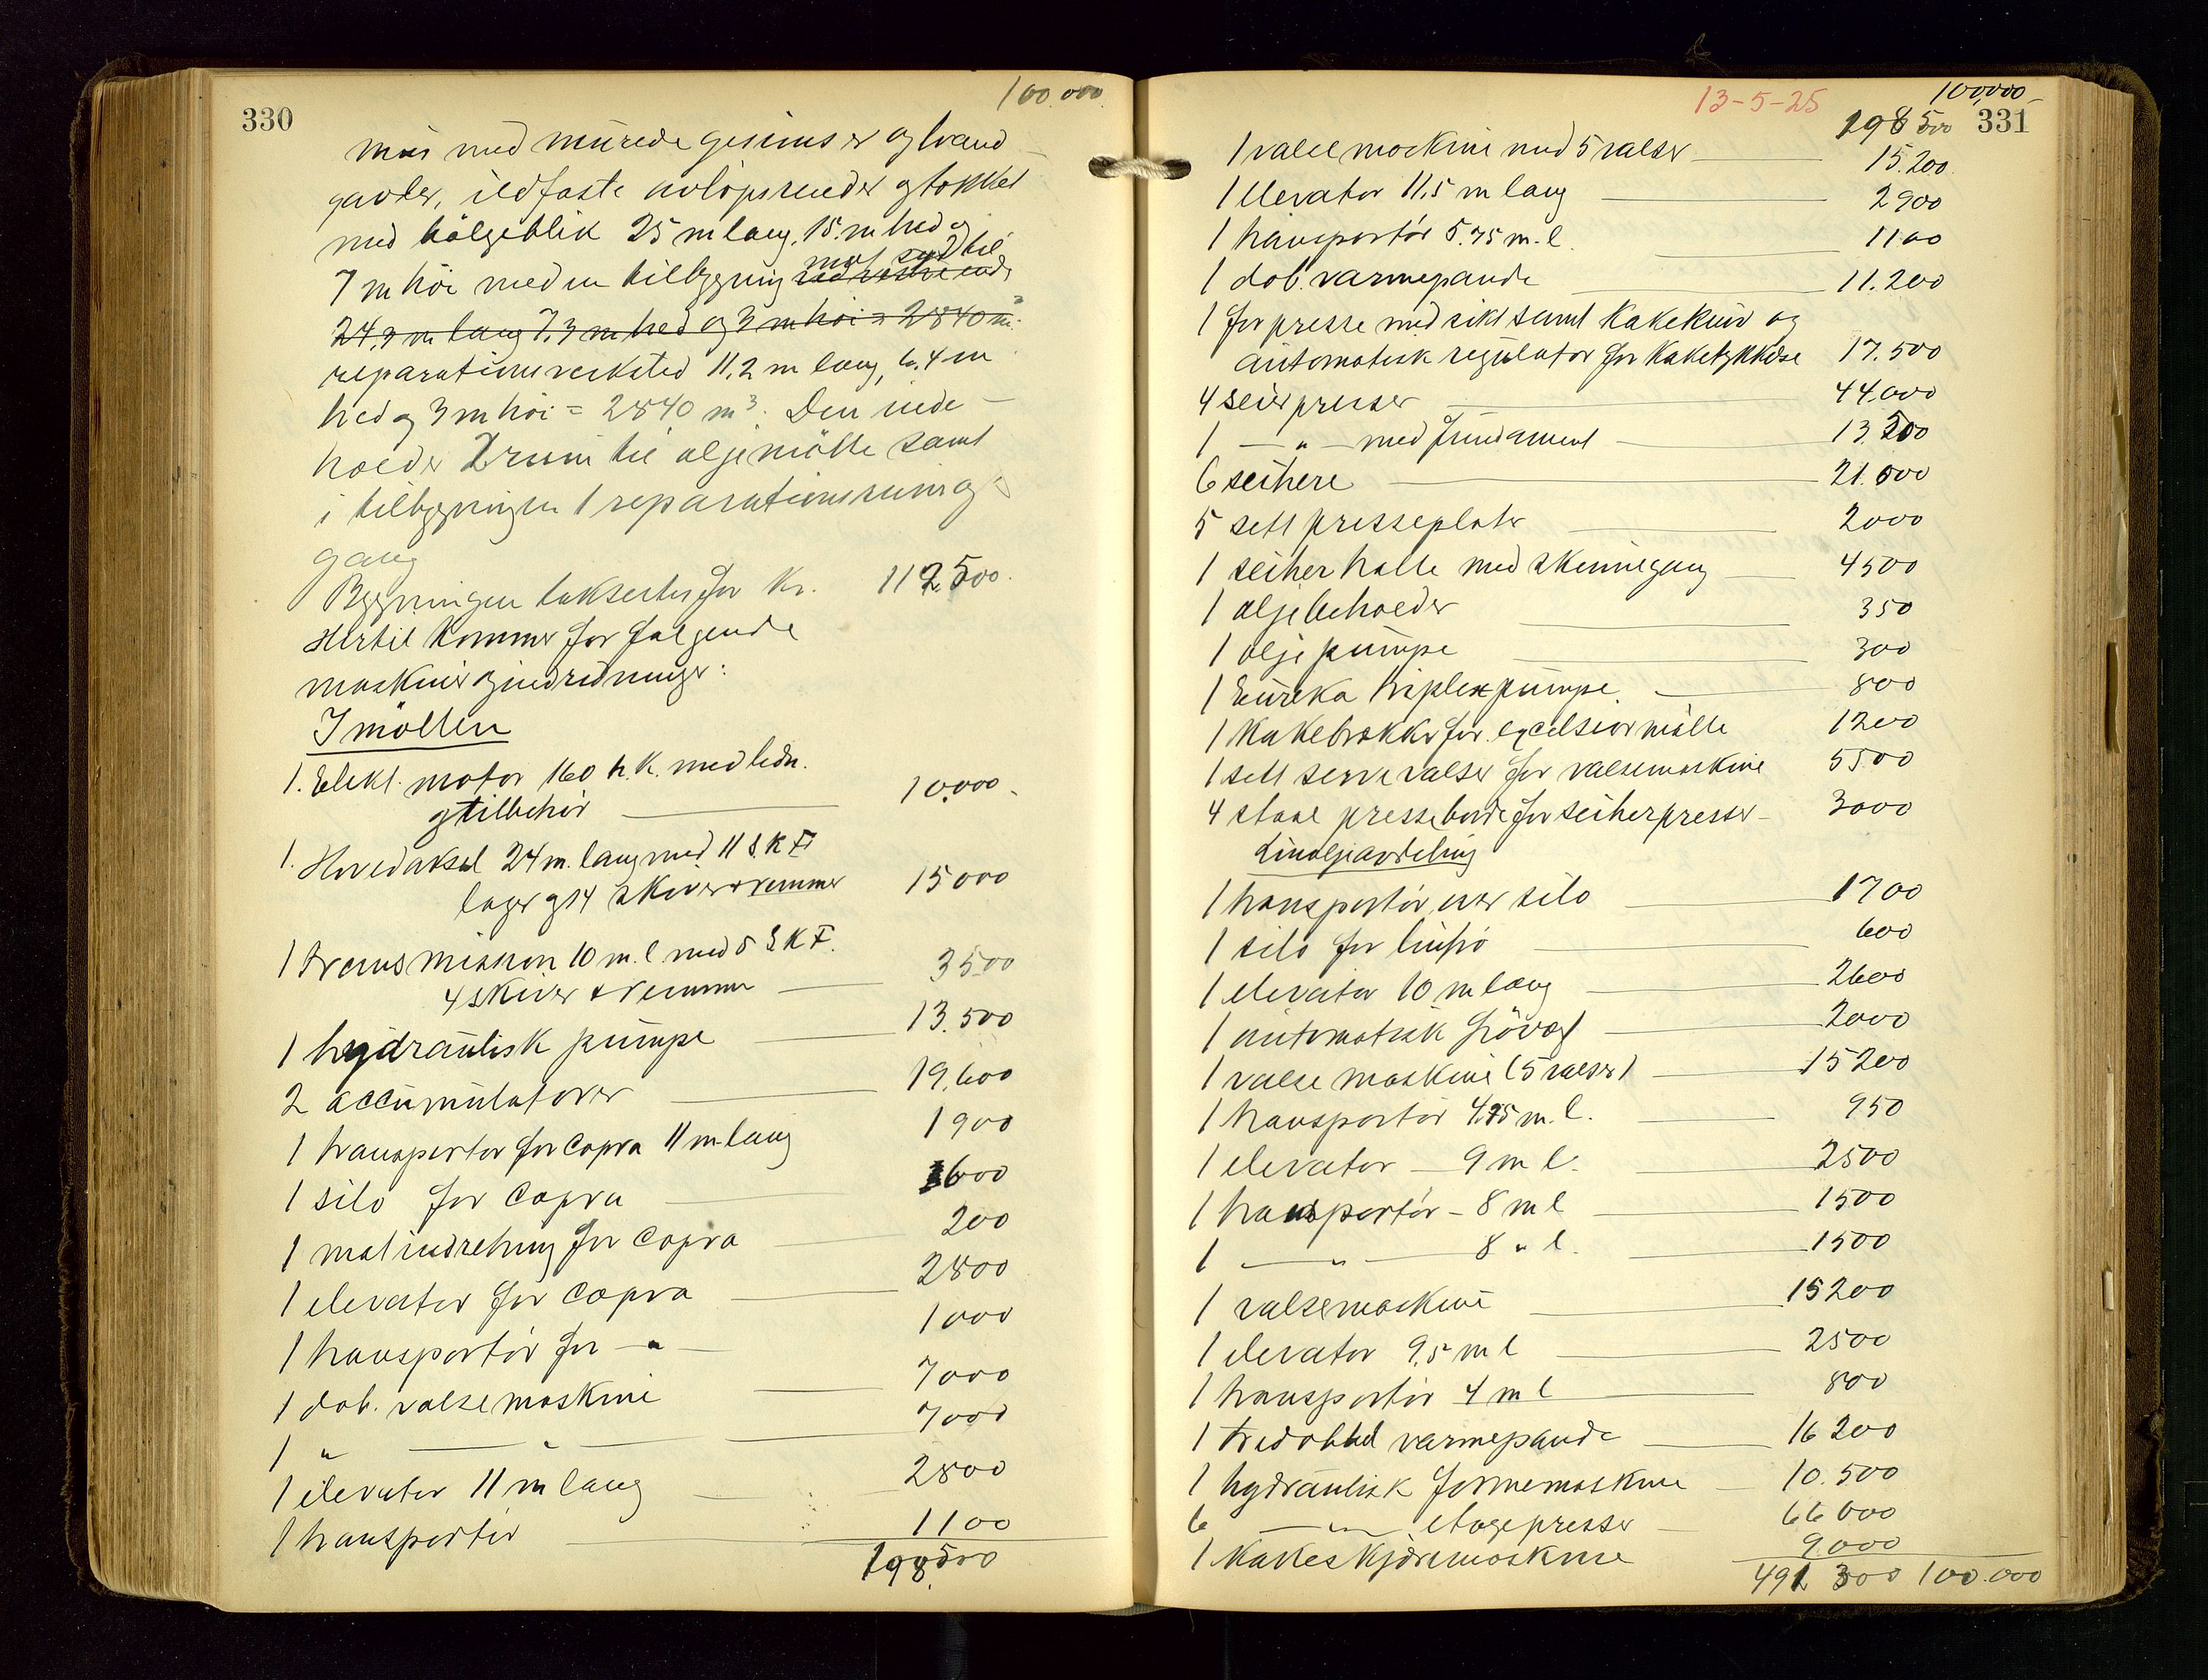 100.000
330
mur med murede gesimser og brand-
gavler, ildfaste avløpsrender og tækket
med bölgeblik 25 m lang, 15 m bred og
7 m höi med en tilbygning mot syd til
ved vestre ende
24,3 m lang 7,3 m bred og 3 m höi = 2840 m³
reparationsverksted 11,2 m lang, 6,4 m
bred og 3 m höi = 2840 m³. Den inde-
holder 2 rum til oljemölle samt
i tilbygningen 1 reparationsrum og
gang
Bygningen takseres for Kr. 112500.
Hertil kommer for følgende
maskiner og indredninger:
I möllen
1. Elekt. motor 160 h.k. med ledn.
og tilbehör 10.000.
1. Hovedaksel 24 m. lang med 11 S.K.F.
lager og 14 skiver + remmer 15000
1 transmission 10 m. l. med 5 S.K.F.
4 skiver + remmer 3500
1 hydraulisk pumpe 13.500
2 accumulatorer 19.600
1 transportør for Copra 11 m lang 1900
1 silo for Copra 600
1 matindretning for Copra 200
1 elevator for Copra 2800
1 transportör for — " — 1000
1 dob. valsemaskine 7000
1 " — " — 7000
1 elevator 11 m lang 2800
1 transportör 1100
198.500
13-5-25
100,000
198500 331
1 valsemaskine med 5 valser 15.200
1 elevator 11,5 m lang 2900
1 transportör 5.75 m. l. 1100
1 dob. varmepande 11.200
1 forpresse med sikt samt kakekniv og
automatisk regulator for kaketykkelse 17.500
4 seierpresser 44.000
1 — " — med fundament 13.200
6 seihere 21.000
5 sett presseplater 2000
1 seiher halle med skinnegang 4500
1 oljebeholder 350
1 olje pumpe 300
1 Eureka triplexpumpe 800
1 kakebrækker for excelsiormölle 1200
1 sett reserve valser for valsemaskine 5500
4 staal pressebord for seiherpresser 3000
Linoljeavdeling
1 transportör over silo 1700
1 silo for linfrö 600
1 elevator 10 m lang 2600
1 automatisk frövegt 2000
1 valsemaskine (5 valser) 15200
1 transportör 4.75 m. l. 950
1 elevator — 9 m l. 2500
1 transportör — 8 m l 1500
1 — " — 8 " l. 1500
1 valsemaskine 15200
1 elevator 9,5 m l 2500
1 transportör 4 m l 800
1 tredobbel varmepande 16200
1 hydraulisk formemaskine 10.500
6 — " — etagepresser 66000
1 Kakeskjæremaskine 9000
491 300 100.000